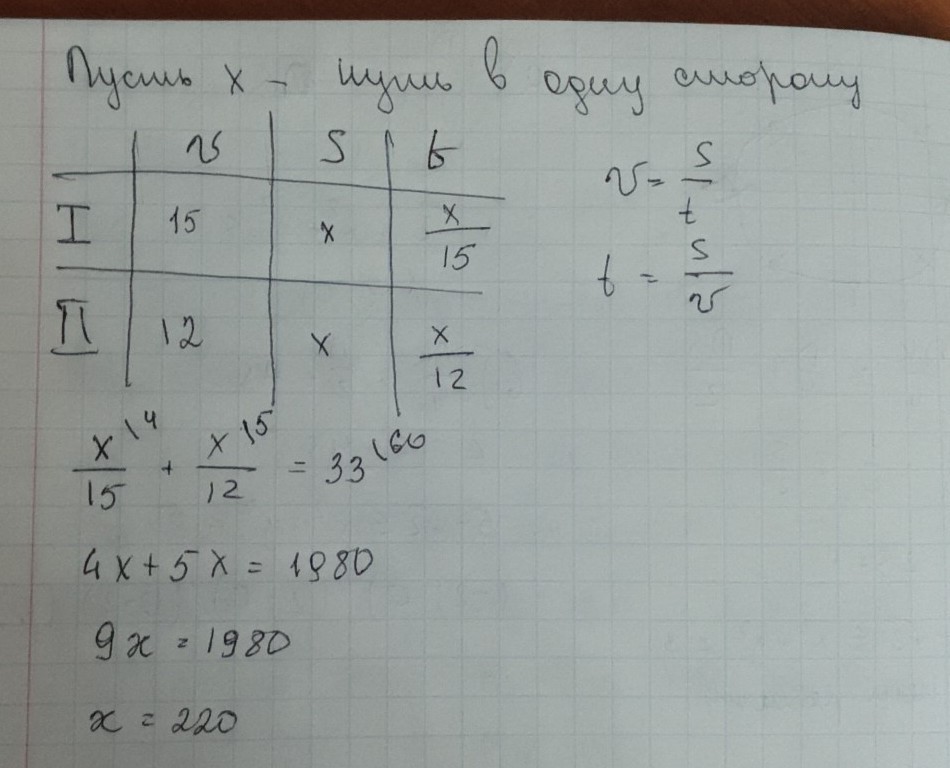 Пусть x – путь в одну сторону
v S t
I 15 x x/15
II 12 x x/12
v = S/t
t = S/v
x\4/15 + x\5/12 = 33\60
4x + 5x = 1980
9x = 1980
x = 220